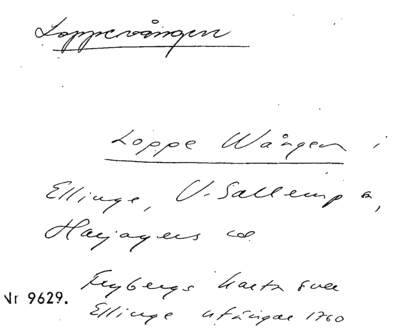 Loppevången
Loppe Wången i
Ellinge, V. Sallerup s,
Harjagers hd.
Frybergs karta över
Nr 9629. Ellinge utängar 1760